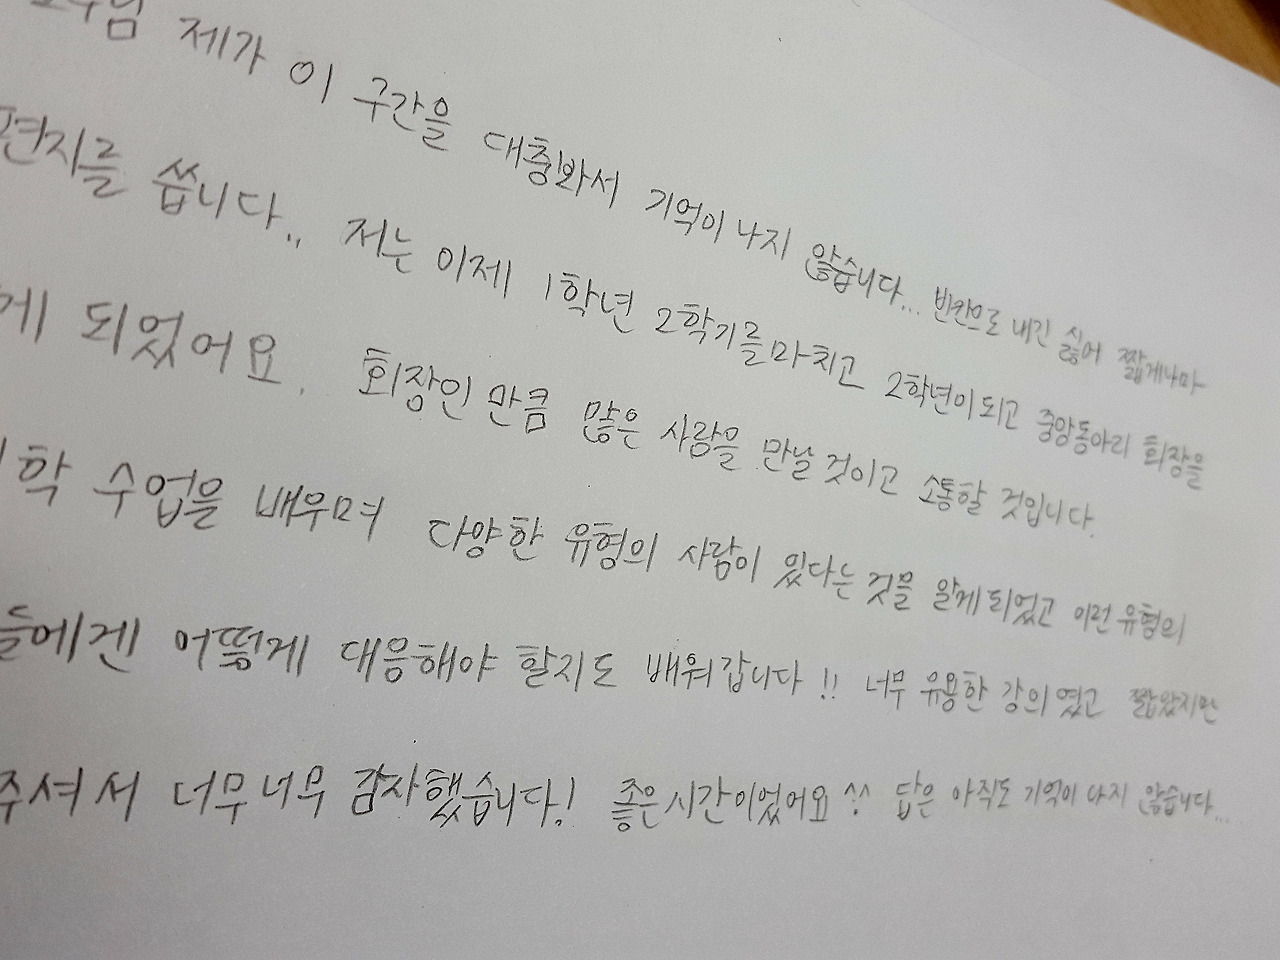 제가 이 구간을 대충봐서 기억이 나지 않습니다... 빈칸으로 내긴 싫어 짧게나마
편지를 씁니다.. 저는 이제 1학년 2학기를마치고 2학년이되고 중앙동아리 회장을
게 되었어요. 회장인 만큼 많은 사람을 만날 것이고 소통할 것입니다.
학 수업을 배우며 다양한 유형의 사람이 있다는 것을 알게되었고 이런유형의
들에겐 어떻게 대응해야 할지도 배워갑니다!! 너무 유용한 강의였고 짧았지만
주셔서 너무너무 감사했습니다! 좋은시간이었어요^^ 답은 아직도 기억이 나지 않습니다...